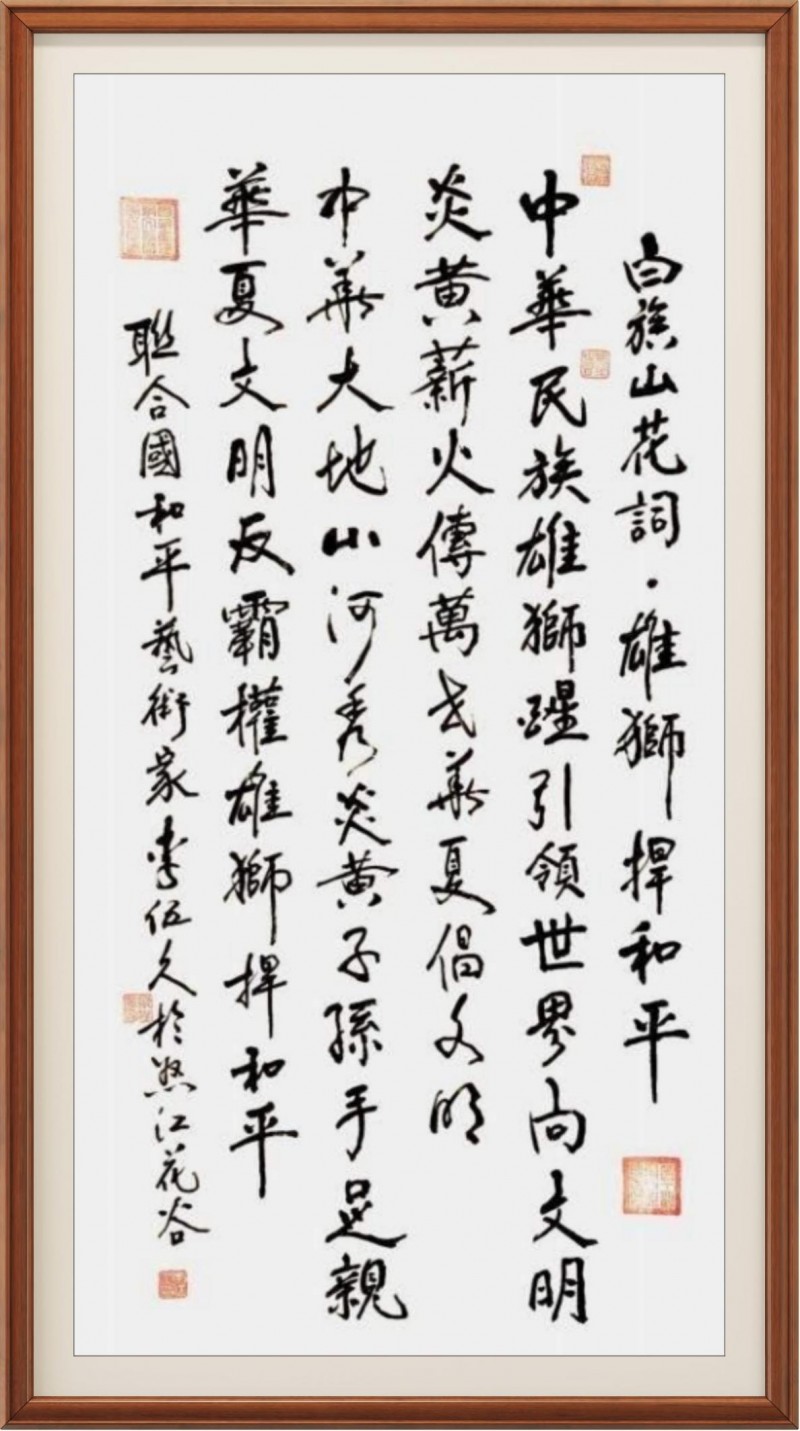 白族山花詞·雄獅捍和平
中華民族雄獅醒引領世界向文明
炎黃薪火傳萬代華夏倡文明
中華大地山河秀炎黃子孫手足親
華夏文明反霸權雄獅捍和平
聯合國和平藝術家李伍久於怒江花谷